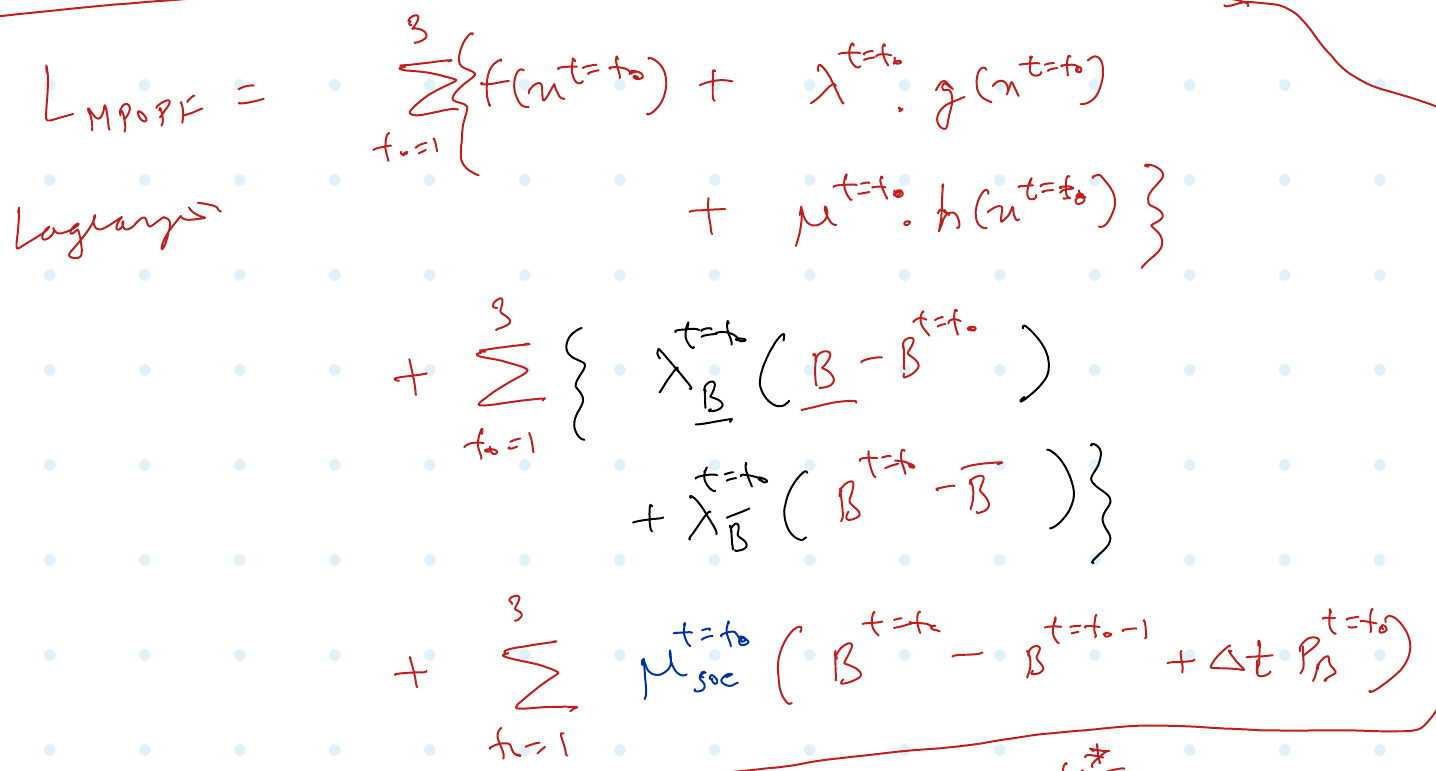 L_{MPOPF} = \sum_{t_0=1}^{3} \{ f(x^{t=t_0}) + \lambda^{t=t_0} \cdot g(x^{t=t_0})
Lagrangian + \mu^{t=t_0} \cdot h(x^{t=t_0}) \}
+ \sum_{t_0=1}^{3} \{ \lambda_{\underline{B}}^{t=t_0} ( \underline{B} - B^{t=t_0} )
+ \lambda_{\overline{B}}^{t=t_0} ( B^{t=t_0} - \overline{B} ) \}
+ \sum_{t_0=1}^{3} \mu_{soc}^{t=t_0} ( B^{t=t_0} - B^{t=t_0-1} + \Delta t P_B^{t=t_0} )